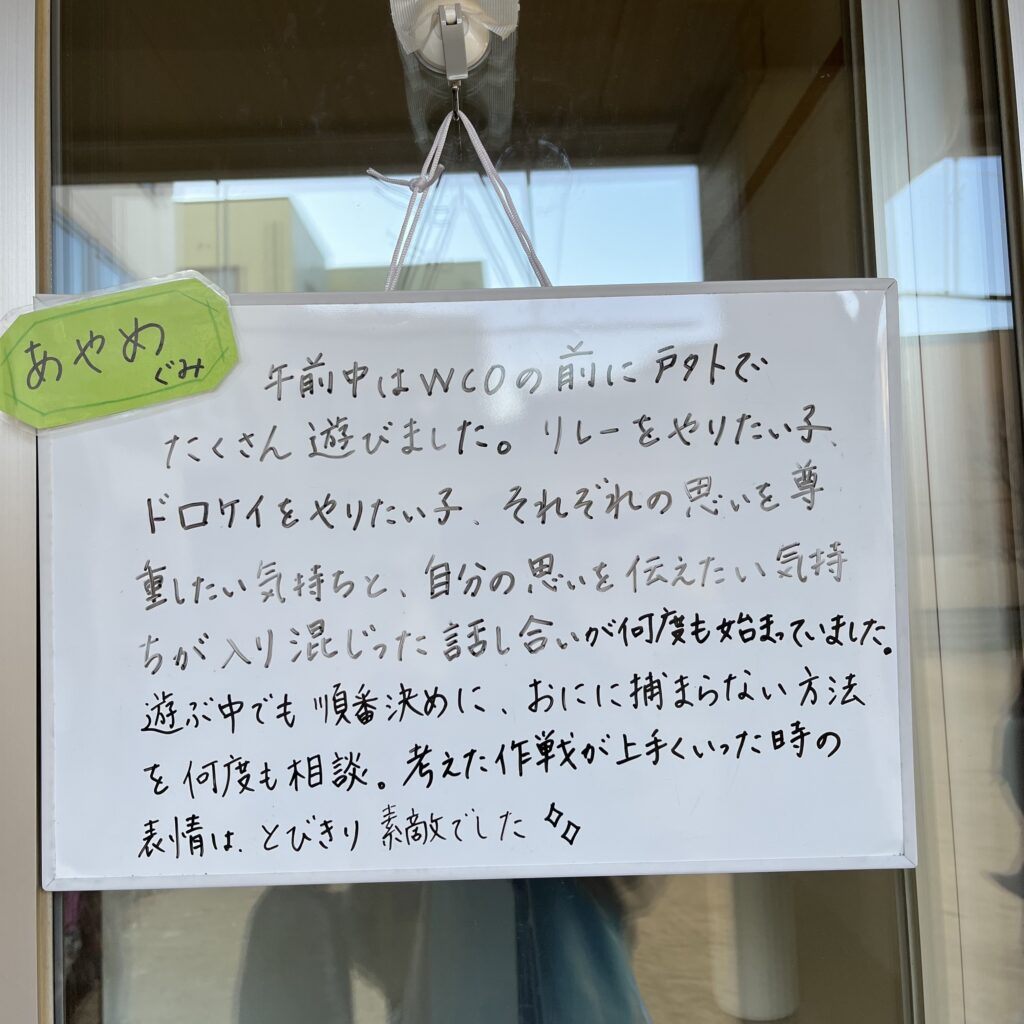 あやめ
ぐみ
午前中はWCOの前に戸外で
たくさん遊びました。リレーをやりたい子、
ドロケイをやりたい子、それぞれの思いを尊
重したい気持ちと、自分の思いを伝えたい気持
ちが入り混じった話し合いが何度も始まっていました。
遊ぶ中でも順番決めに、おにに捕まらない方法
を何度も相談。考えた作戦が上手くいった時の
表情は、とびきり素敵でした